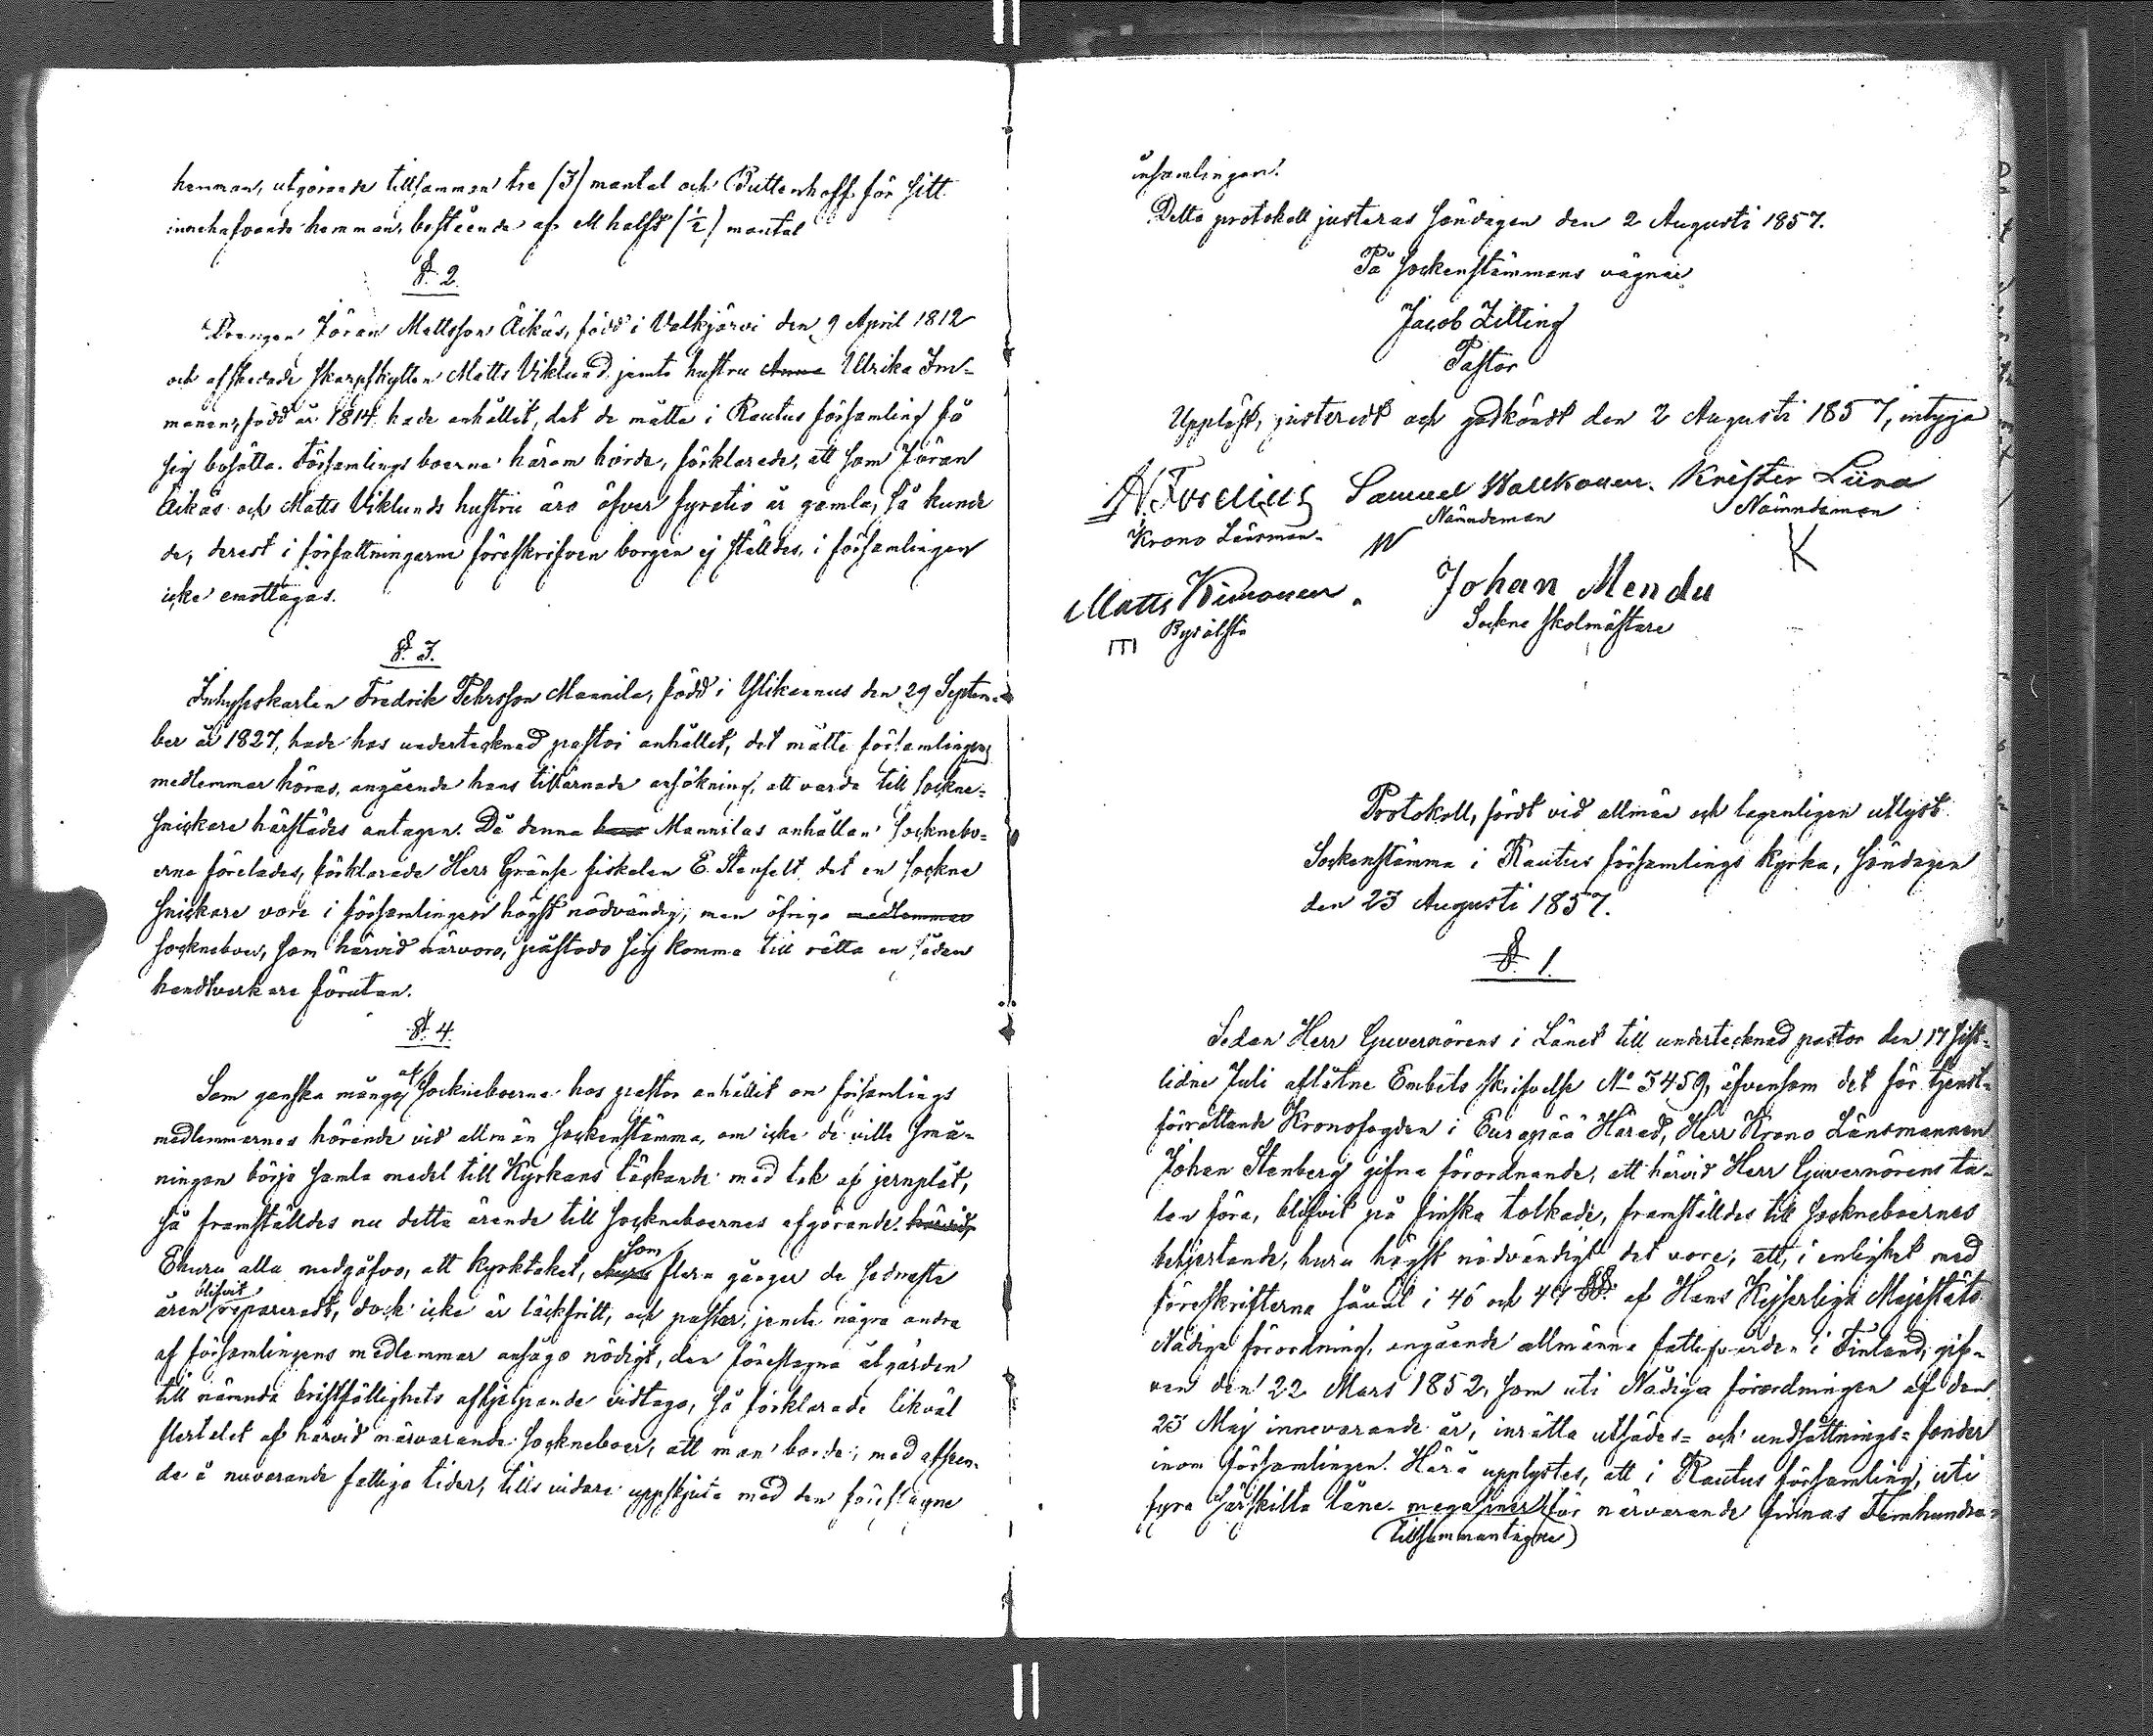 hemman, utgörande tillsamman tre (3) mantal och Buttenhoff för sitt
innehafvande hemman, bestående af ett halft (1/2) mantal
§. 2.
Drengen Jöran Mattsson Äikäs, född i Valkjärvi den 9 April 1812
och afskedade skarpskytten Matts Viklund jemte hustru Anna Ullrika Im-
monen, född år 1814 hade anhållit, det de måtte i Rautus församling få
sig bosätta. Församlingsboerne härom hörde, förklarade, att som Jöran
Äikäs och Matts Viklunds hustru äro öfver fyratio år gamla, så kunde
de, derest i författningarne föreskrifven borgen ej ställdes, i församlingen
icke emottagas.
§. 3.
Inhyseskarlen Fredrik Pehrsson Mannila, född i Ylikannus den 29 Septem-
ber år 1827, hade hos undertecknad pastor anhållit, det måtte församlingens
medlemmar höras, angående hans tillärnade ansökning, att varda till sockne-
snickare härstädes antagen. Då denna hans Mannilas anhållan socknebo-
erne förelades, förklarade Herr Gränse fiskalen E. Stenfelt, det en sockne
snickare vore i församlingen högst nödvändig, men öfriga medlemmar
socknebor, som härvid närvoro, påstodo sig komma till rätta en sådan
handtverkare förutan.
§. 4.
Som ganska många af sockneboerne hos pastor anhållit om församlings
medlemmarnes hörande vid allmän sockenstämma, om icke de ville små-
ningom börja samla medel till Kyrkans täckande med tak af jernplåt,
så framställdes nu detta ärende till sockneboernes afgörande härvid.
Ehuru alla medgåfvo, att kyrktaket, ehuru som flera gånger de sednaste
åren blifvit repareradt, dock icke är läckfritt, och pastor, jemte några andra
af församlingens medlemmar ansågo nödigt, den föreslagna åtgärden
till nämnda bristfällighets afhjelpande vidtaga, så förklarade likväl
flertalet af härvid närvarande socknebor, att man borde, med afseen-
de å nuvarande fattiga tider, tills vidare uppskjuta med den föreslagne
insamlingen.
Detta protokoll justeras söndagen den 2 Augusti 1857.
På Sockenstämmans vägnar
Jacob Zitting
Pastor
Uppläst, justeradt och godkändt den 2 Augusti 1857, intyga
Samuel Wallkonen. Krister Liira
Nämndeman Nämndeman
Krono Länsman.
Matts Kimonen. Johan Mendu
Byeålste Sockne skolmästare
Protokoll, fördt vid allmän och lagenligen utlyst
Sockenstämma i Rautus församlings kyrka, söndagen
den 23 Augusti 1857.
§. 1.
Sedan Herr Guvernörens i Länet till undertecknad pastor den 17 sist-
lidne Juli aflåtne Embets skrifvelse No 3459, äfvensom det för tjenst-
förrättande Kronofogden i Euräpää Härad, Herr Krono Länsmannen
Johan Stenberg gifna förordnande, att härvid Herr Guvernörens ta-
lan föra, blifvit på finska tolkade, framställdes till sockneboernes
behjertande, huru högst nödvändigt det vore, att, i enlighet med
föreskrifterna såväl i 46 och 47 §§. af Hans Kejserliga Majestäts
Nådiga förordning, angående allmänna fattigvården i Finland, gif-
ven den 22 Mars 1852, som uti Nådiga förordningen af den
23 Maj innevarande år, inrätta utsädes- och undsättnings-fonder
inom församlingen. Härå upplystes, att i Rautus församling, uti
fyra särskilta låne-magasiner för närvarande finnas Femhundra-
(tillsammantagne)